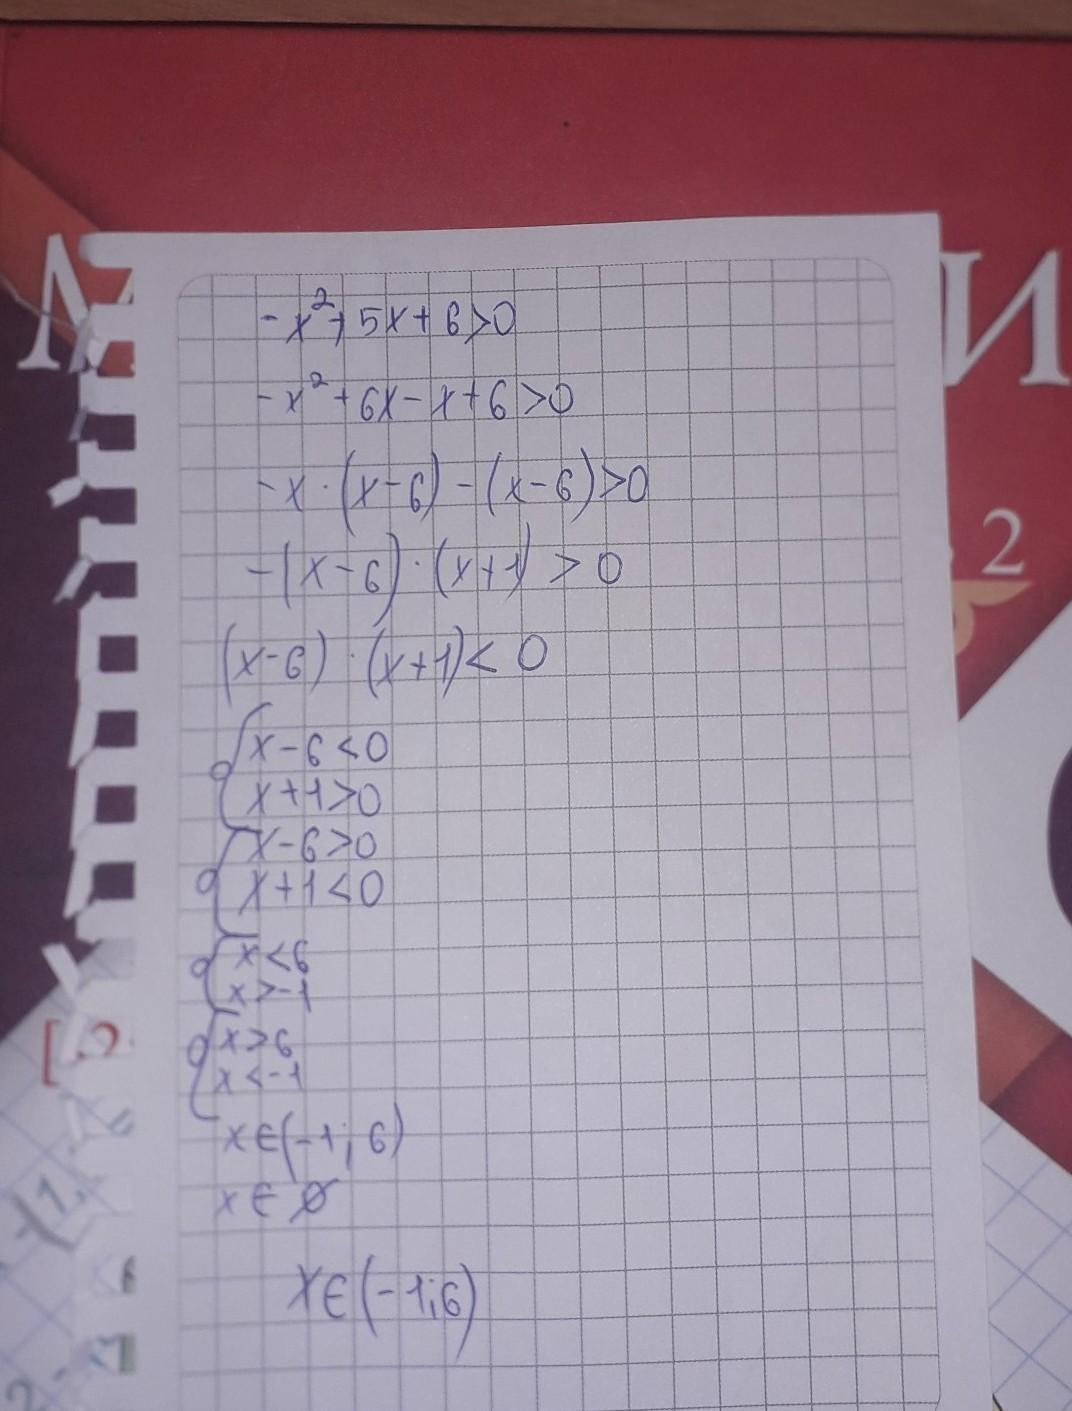 -x²+5x+6>0
-x²+6x-x+6>0
-x·(x-6)-(x-6)>0
-(x-6)·(x+1)>0
(x-6)·(x+1)<0
{x-6<0
x+1>0
{x-6>0
x+1<0
{x<6
x>-1
{x>6
x<-1
x∈(-1;6)
x∈∅
x∈(-1;6)
И
2